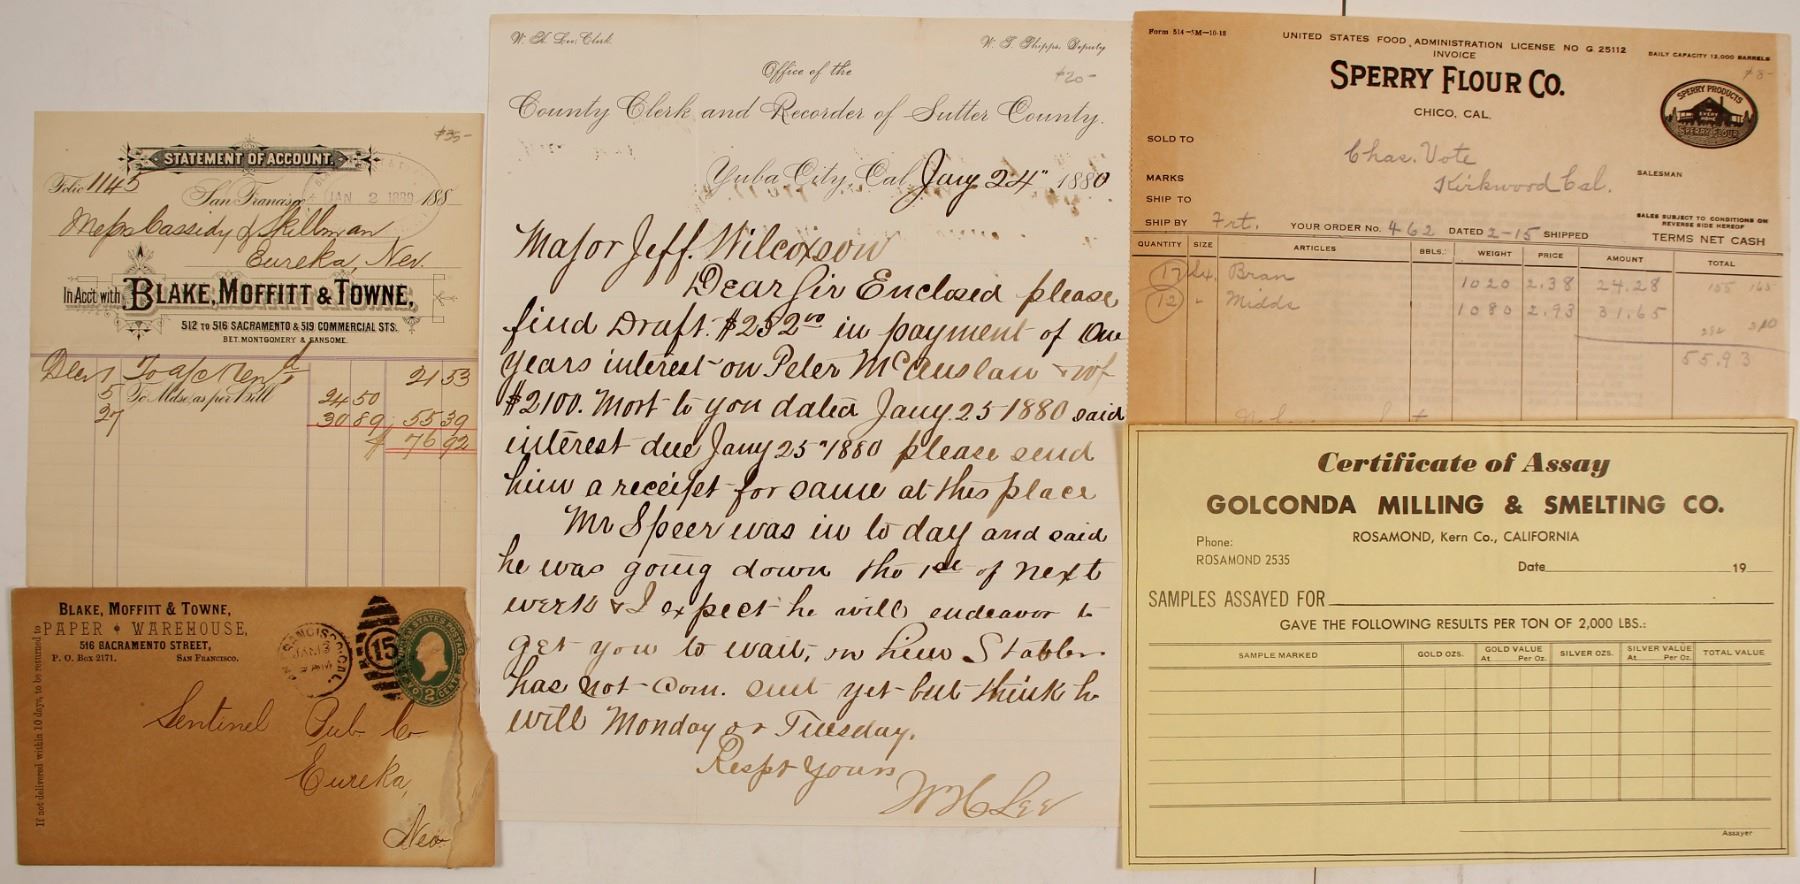 $35-
STATEMENT OF ACCOUNT.
Folio 1145
San Francisco, JAN 2 188
Mess Cassidy & Skillman
Eureka, Nev.
In Acct with BLAKE, MOFFITT & TOWNE,
512 TO 516 SACRAMENTO & 519 COMMERCIAL STS.
BET. MONTGOMERY & SANSOME.
Decr 1 To a/c Rend 21 53
5 To Mdse, as per Bill 24 50
27 30 89 55 39
$ 76 92
BLAKE, MOFFITT & TOWNE,
PAPER WAREHOUSE,
516 SACRAMENTO STREET,
P. O. Box 2171. SAN FRANCISCO.
If not delivered within 10 days, to be returned to
SAN FRANCISCO, CAL.
JAN 3
15
UNITED STATES POSTAGE
TWO 2 CENTS
Sentinel Pub. Co
Eureka,
Nev
W. H. Lee, Clerk. W. T. Phipps, Deputy
Office of the $20-
County Clerk and Recorder of Sutter County.
Yuba City, Cal, Jany 24" 1880
Major Jeff. Wilcoxson
Dear Sir Enclosed please
find Draft. $252 00 in payment of One
years interest on Peter McAuslan & wf
$2100. Mort to you dated Jany. 25 1880 said
interest due Jany 25" 1880 please send
him a receipt for same at this place
Mr Speer was in to day and said
he was going down the 1st of next
week & I expect he will endeavor to
get you to wait, on him Stabler
has not com. suit yet but think he
will Monday or Tuesday.
Respt Yours
W H Lee
Form 514-5M-10-18
UNITED STATES FOOD ADMINISTRATION LICENSE NO G 25112
INVOICE
DAILY CAPACITY 12,000 BARRELS
$8-
SPERRY FLOUR CO.
CHICO, CAL.
SPERRY PRODUCTS
SPERRY FLOUR
SOLD TO Chas. Vote
Kirkwood Cal.
MARKS SALESMAN
SHIP TO
SHIP BY Frt. YOUR ORDER NO. 462 DATED 2-15 SHIPPED
SALES SUBJECT TO CONDITIONS ON
REVERSE SIDE HEREOF
TERMS NET CASH
QUANTITY SIZE ARTICLES BBLS. WEIGHT PRICE AMOUNT TOTAL
12 Bran 1020 2.38 24.28 155 165
12 " Midds 1080 2.93 31.65
55.93
Certificate of Assay
GOLCONDA MILLING & SMELTING CO.
ROSAMOND, Kern Co., CALIFORNIA
Phone:
ROSAMOND 2535
Date 19
SAMPLES ASSAYED FOR
GAVE THE FOLLOWING RESULTS PER TON OF 2,000 LBS.:
SAMPLE MARKED GOLD OZS. GOLD VALUE At Per Oz. SILVER OZS. SILVER VALUE At Per Oz. TOTAL VALUE
Assayer